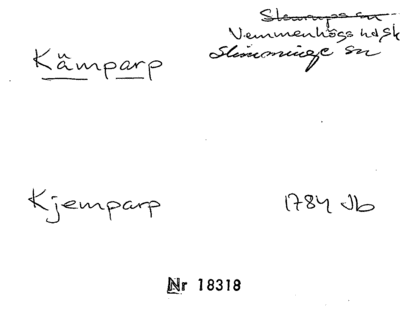 Skurups sn
Vemmenhögs hd, Sk
Slimminge sn
Kämparp
Kjemparp 1784 Jb
Nr 18318